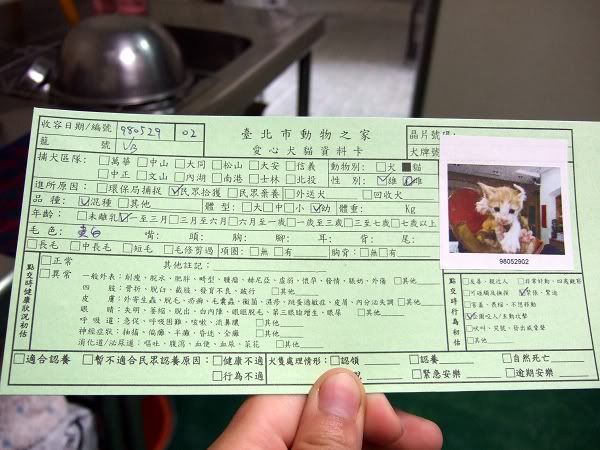 收容日期/編號 980529 02 臺北市動物之家 晶片號碼:
籠 號 愛心犬貓資料卡 犬牌號
捕犬區隊: □萬華 □中山 □大同 □松山 □大安 □信義 動物別: □犬 ■貓
□中正 □文山 □內湖 □南港 □士林 □北投 性 別: ☑雄 □雌
進所原因: □環保局捕捉 ☑民眾拾獲 □民眾棄養 □外送犬 □回收犬
品 種: ☑混種 □其他 體 型: □大 □中 □小 ☑幼 體重: Kg
年齡: □未離乳 ☑一至三月 □三月至六月 □六月至一歲 □一歲至三歲 □三至七歲 □七歲以上
毛 色: 黃白 嘴: 頭: 胸: 腳: 耳: 背: 尾:
□長毛 □中長毛 □短毛 □毛修剪過 項圈: □無 □有 胸背: □無 □有
98052902
點交時健康狀況初估
□正常 其他註記:
□異常 一般外表: 削瘦、脫水、肥胖、畸型、腫瘤、赫尼亞、虛弱、懷孕、發情、脹奶、外傷 □其他
四 肢: 骨折、脫臼、截肢、發育不良、跛行 □其他
皮 膚: 外寄生蟲、脫毛、疥癬、毛囊蟲、黴菌、濕疹、跳蚤過敏症、皮屑、內分泌失調 □其他
眼 睛: 失明、萎縮、脫出、白內障、眼瞼脫毛、第三眼瞼增生、眼屎 □其他
呼吸道: 急促、呼吸困難、咳嗽、流鼻膿 □其他
神經症狀: 抽搐、偏癱、半癱、昏迷、全癱 □其他
消化道/泌尿道: 嘔吐、腹瀉、血便、血尿、菜花 □其他
點交時行為初估
□友善、親近人 □非常好動、四處觀察
□可碰觸及撫摸 ☑緊張、緊迫
□害羞、畏縮、不想移動
☑企圖咬人/主動攻擊
□吠叫、哭號、發出威脅聲
□其他
□適合認養 □暫不適合民眾認養原因: □健康不適 犬隻處理情形: □認領 □認養 □自然死亡
□行為不適 □緊急安樂 □逾期安樂